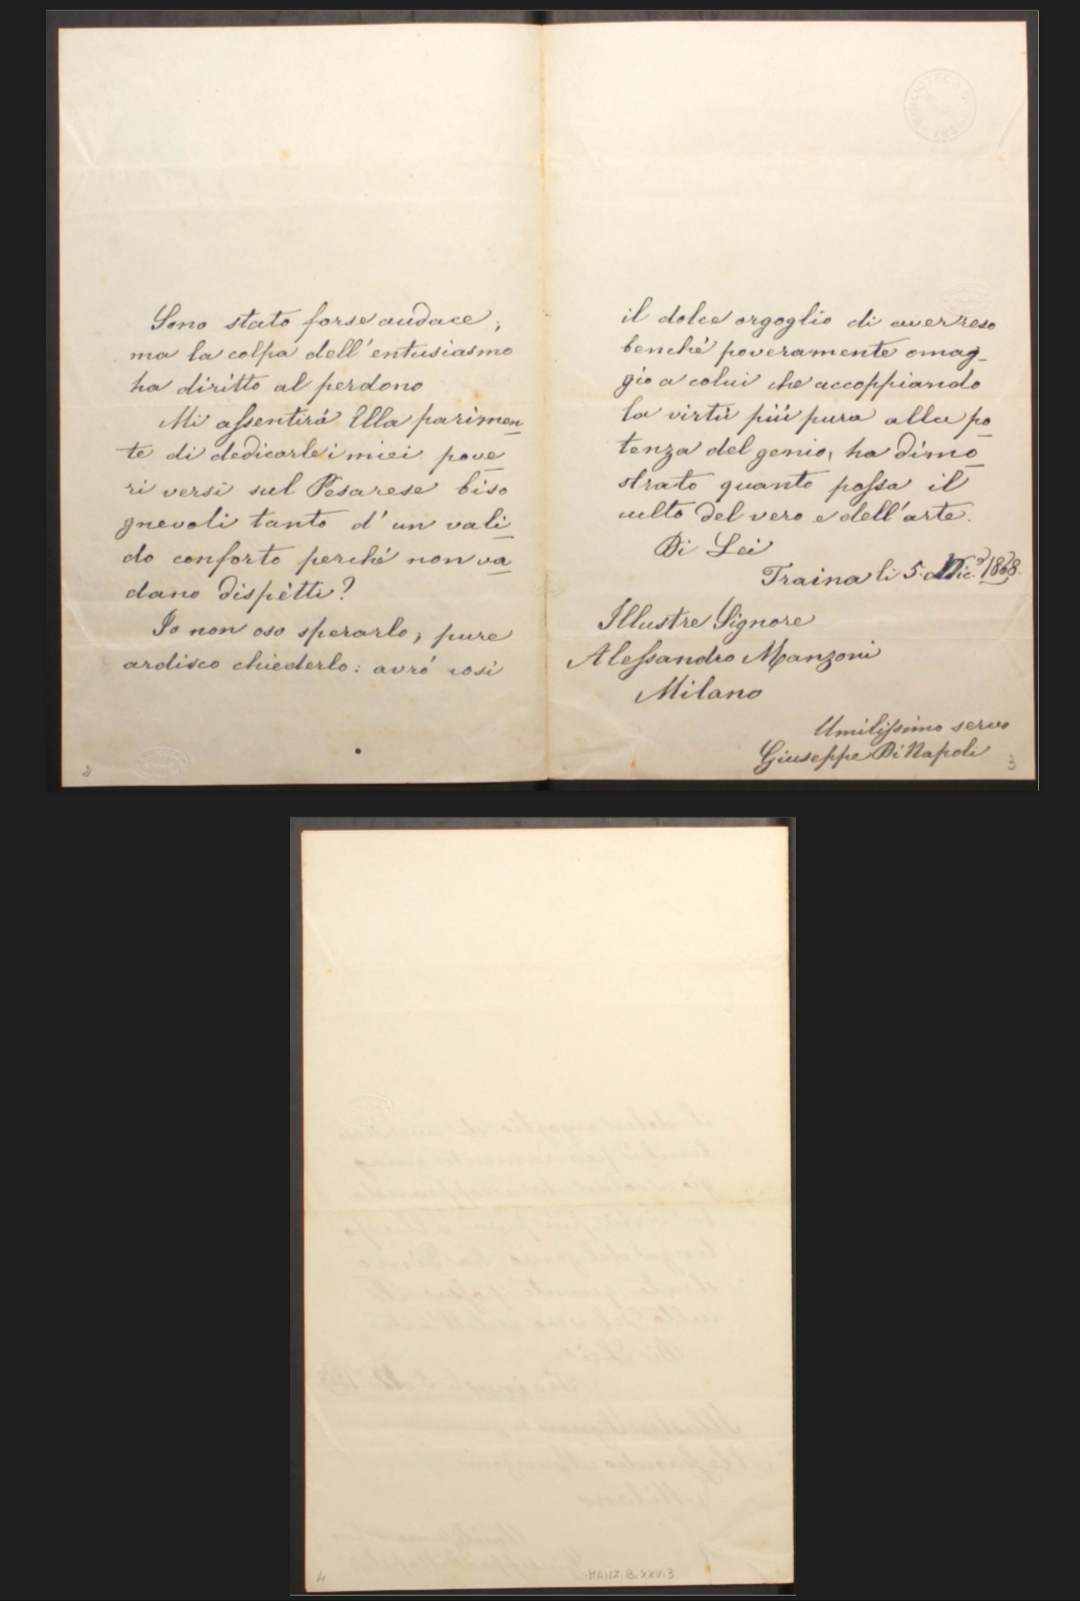 Sono stato forse audace;
ma la colpa dell'entusiasmo
ha diritto al perdono
Mi assentirà Ella parimen
te di dedicarle i miei pove
ri versi sul Pesarese biso
gnevoli tanto d'un vali
do conforto perchè non va
dano dispètti?
Io non oso sperarlo, pure
ardisco chiederlo: avrò così
2
il dolce orgoglio di aver reso
benchè poveramente omag-
gio a colui che accoppiando
la virtù più pura alla po
tenza del genio, ha dimo
strato quanto possa il
culto del vero e dell'arte.
Di Lei
Traina li 5. Dic. 1868.
Illustre Signore
Alessandro Manzoni
Milano
Umilissimo servo
Giuseppe Di Napoli
3
4
MANZ. B. XXV. 3